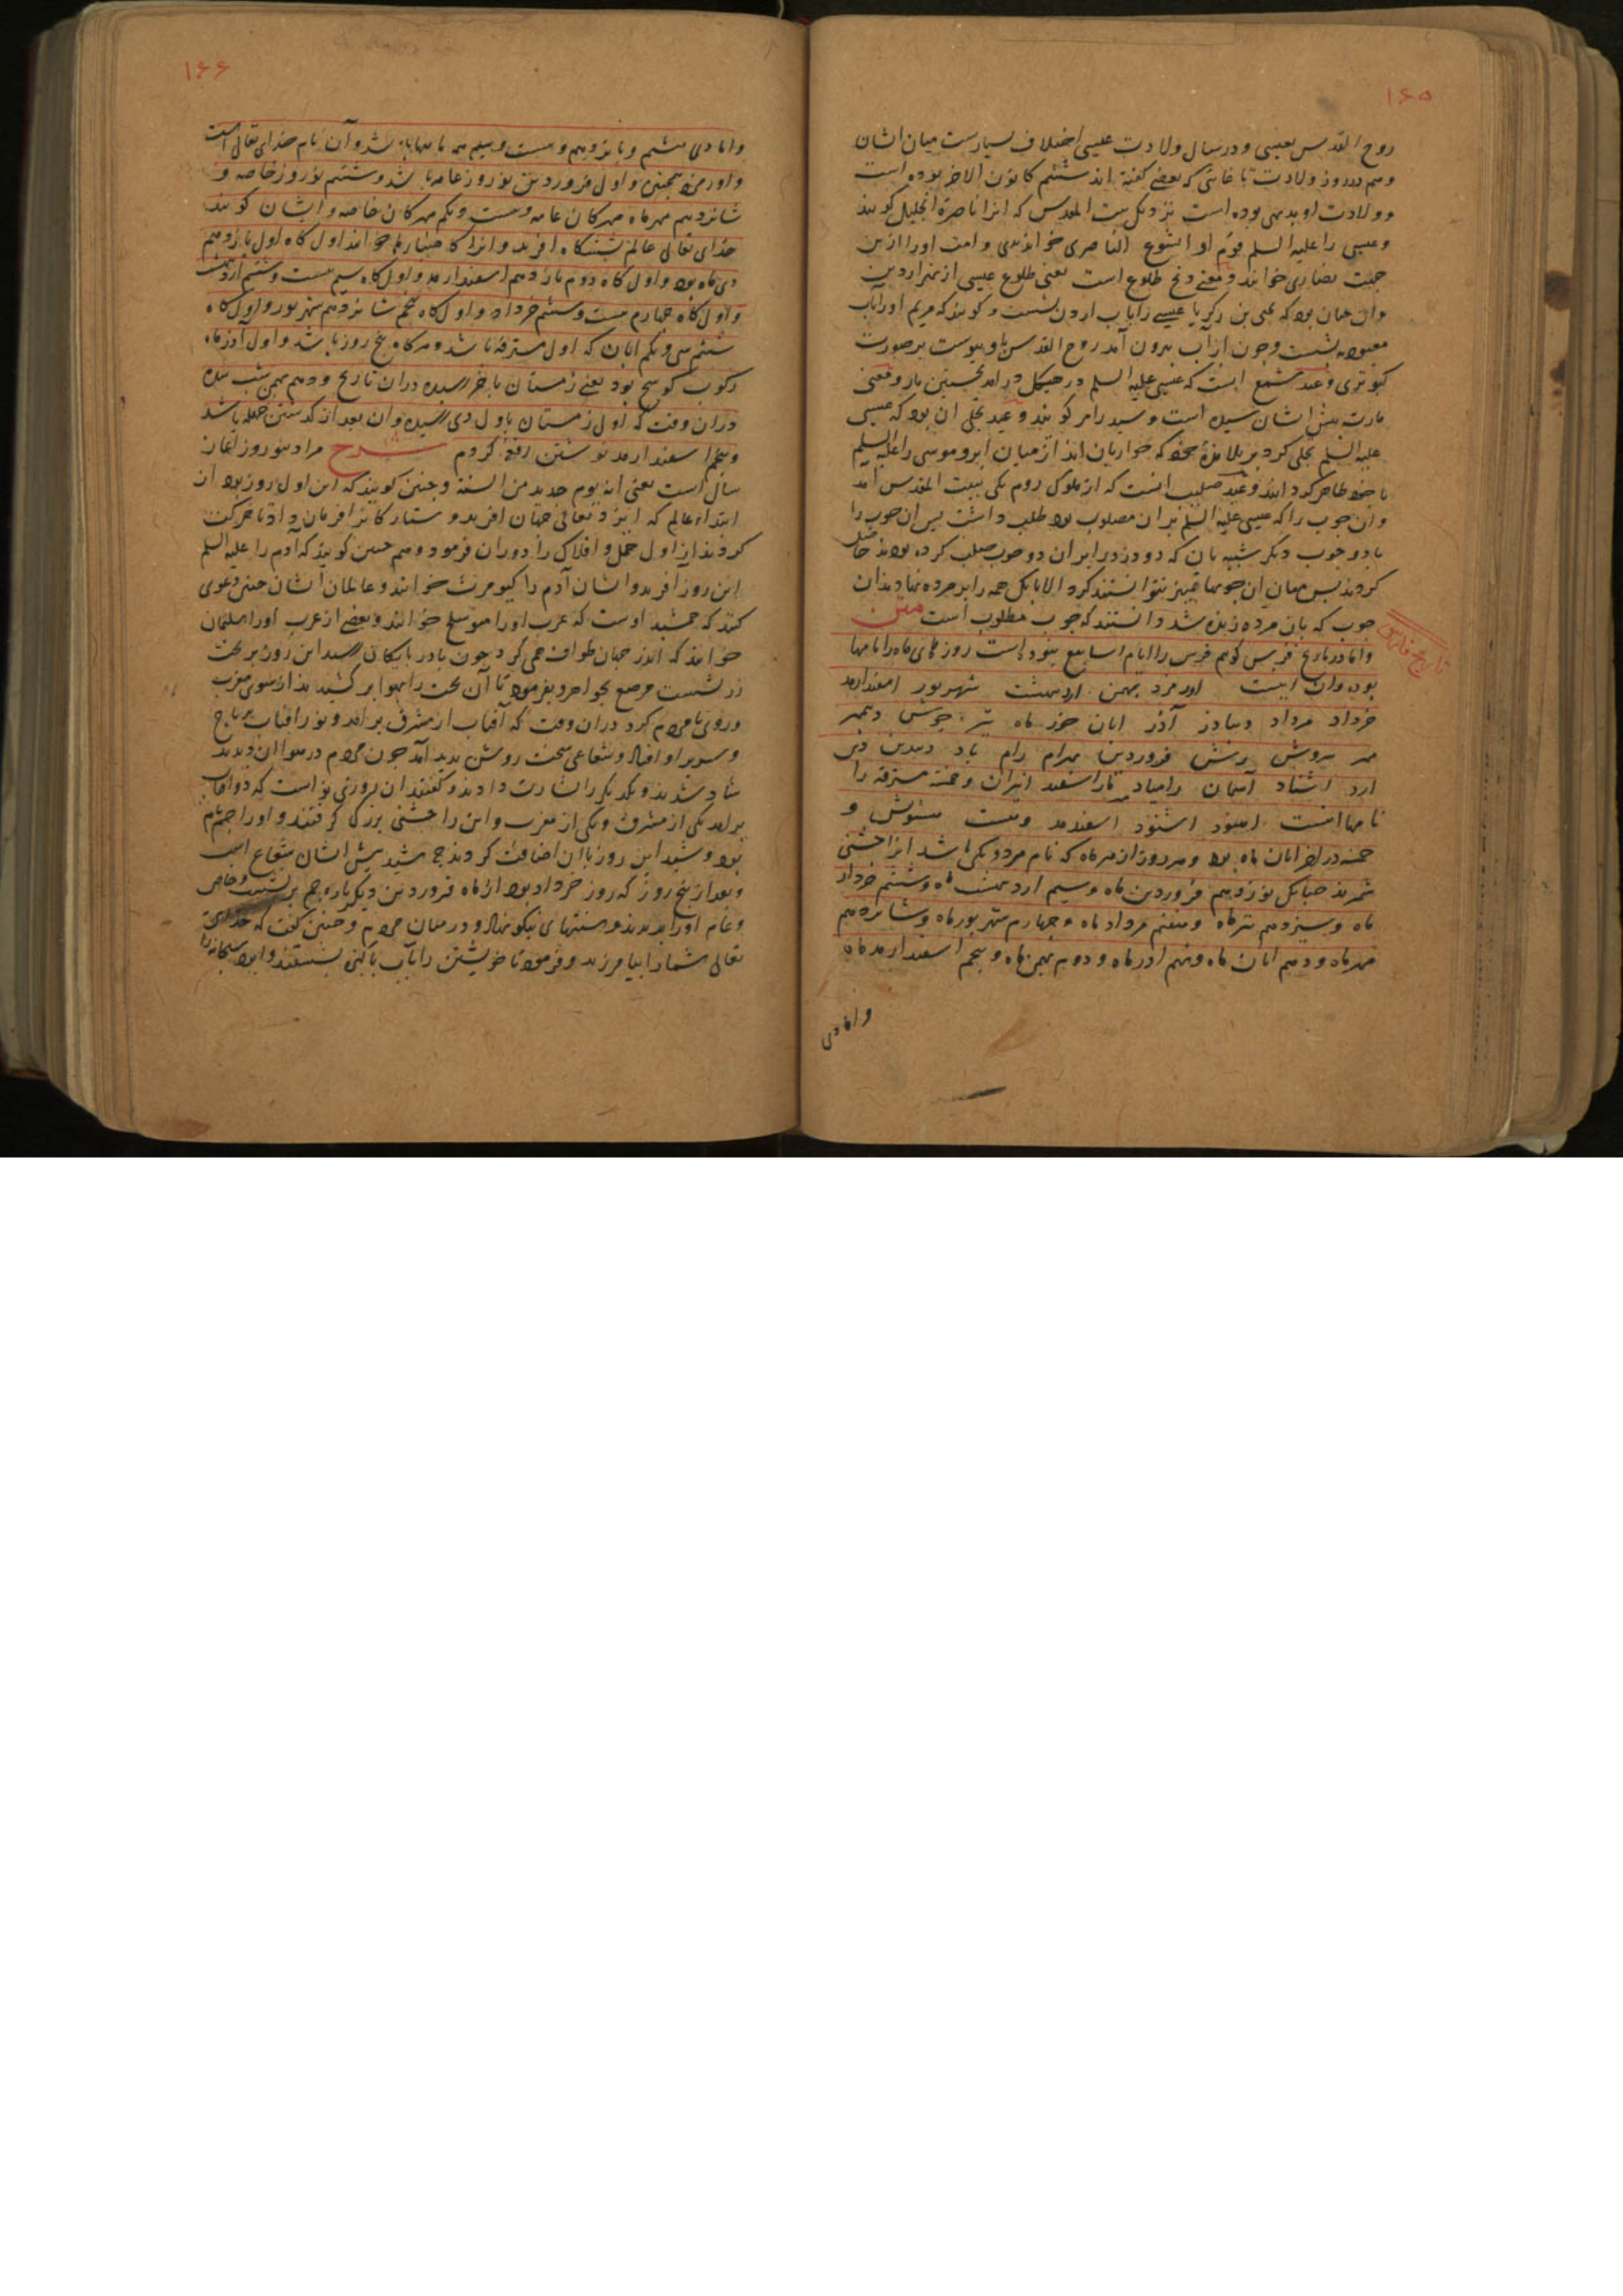 ۱۶۵
روح القدس یعنی و در سال ولادت عیسی اختلاف بسیارست میان ایشان
وهم در روز ولادت تا غایتی که بعضی گفته اند ششم کانون الاخر بوده است
و ولادت او بدیهی بوده است نزدیک بیت المقدس که انرا ناصرة الجلیل گویند
وعیسی را علیه السلم قوم او ایشوع الناصری خواندندی و امت او را ازین
جهت نصاری خوانند و معنی دنح طلوع است یعنی طلوع عیسی از نهر اردن
وان چنان بود که یحیی بن زکریا عیسی را باب اردن بشست و گویند که مریم او را باب
معمودیه بشست و چون از آب بیرون آمد روح القدس باو پیوست بر صورت
کبوتری و عید شمع انست که عیسی علیه السلم در هیکل در امد نخستین بار و معنی
مارت پیش ایشان سیده است و سید را مر گویند و عید تجلی ان بود که عیسی
علیه السلم تجلی کرد بر تلامذهٔ خود که حواریان اند از میان ابر و موسی را علیه السلم
با خود ظاهر کردانید و عید صلیب انست که از ملوک روم یکی ببیت المقدس آمد
وان چوب را که عیسی علیه السلم بران مصلوب بود طلب داشت پس ان چوب را
با دو چوب دیگر شبیه بان که دو دزد را بران دو چوب صلب کرده بودند حاصل
کردند پس میان ان چوبها تمییز نتوانستند کرد الا بانک همه را بر مرده نهادند ان
چوب که بان مرده زنده شد دانستند که چوب مطلوب است متن
تاریخ فارس
واما در تاریخ فرس گویم فرس را ایام اسابیع نبوده است روزهای ماه را نامها
بوده وان اینست اورمزد بهمن اردیبهشت شهریور اسفندارمد
خرداد مرداد دیبادر آذر ابان خور ماه تیر جوش دیبمهر
مهر سروش رشن فروردین بهرام رام باد دیبدین دین
ارد اشتاد آسمان رامیاد ماراسفند انیران و خمسه مسترقه را
نامها اینست اهنود اشنود اسفندمد وهشت هشتویش و
خمسه در اخر ابان ماه بود و هر روز از هر ماه که نام هر دو یکی باشد انرا جشنی
شمرند چنانک نوزدهم فروردین ماه و سیم اردیبهشت ماه و ششم خرداد
ماه و سیزدهم تیر ماه و هفتم مرداد ماه و چهارم شهریور ماه و شانزدهم
مهر ماه و دهم ابان ماه و نهم ادر ماه و دوم بهمن ماه و پنجم اسفندارمد ماه
واما دی
۱۶۶
واما دی هشتم و پانزدهم و بیست و سیم همه نامها باشد و آن نام خدای تعالی است
و اورمزد همچنین و اول فروردین نوروز عامه باشد و ششم نوروز خاصه و
شانزدهم مهر ماه مهرکان عامه و بیست و یکم مهرکان خاصه و ایشان گویند
خدای تعالی عالم بشش گاه افرید و انرا گاهنبارها خوانند اول گاه اول پانزدهم
دی ماه بود و اول گاه دوم یازدهم اسفندارمد و اول گاه سیم بیست و ششم اردیبهشت
و اول گاه چهارم بیست و ششم خرداد و اول گاه پنجم شانزدهم شهریور و اول گاه
ششم سی و یکم ابان که اول مسترقه باشد و هر گاه پنج روز باشد و اول آذر ماه
رکوب کوسج بود یعنی زمستان باخر رسیده دران تاریخ و دهم بهمن شب سده
دران وقت که اول زمستان باول دی رسیده وان بعد از گذشتن چله باشد
و پنجم اسفندارمد نوشتن رقعهٔ کژدم شرح مراد بنوروز آغاز
سال است یعنی انه یوم جدید من السنة و چنین گویند که این اول روز بود از
ابتداء عالم که ایزد تعالی جهان افرید و ستارگانرا فرمان داد تا حرکت
کردند از اول حمل و افلاک را دوران فرمود و هم چنین گویند که آدم را علیه السلم
این روز افرید و ایشان آدم را کیومرث خوانند و عالمان ایشان چنین دعوی
کنند که جمشید اوست که عرب او را متوشلخ خوانند و بعضی از عرب او را سلیمان
خوانند که اندر جهان طواف همی کرد چون بادربایکان رسید این روز بر تخت
زر نشست مرصع بجواهر و بفرمود تا آن تخت را بهوا بر کشیدند از سوی مغرب
و روی بمردم کرد دران وقت که آفتاب از مشرق بر امد و نور آفتاب بر تاج
و سریر او افتاد و شعاعی سخت روشن پدید آمد چون مردم در هوا ان دیدند
شاد شدند و یکدیگر را بشارت دادند و گفتند ان روزی نو است که دو افتاب
بر امد یکی از مشرق و یکی از مغرب و این را جشنی بزرگ گرفتند و او را جم نام
بود و شید این روز با ان اضافت کردند چه شید پیش ایشان شعاع است
و بعد از پنج روز که روز خرداد بود از ماه فروردین دیگر باره جم بر نشست و خاص
و عام او را بدیدند و سنتهای نیکو نهاد و در میان مردم و چنین گفت که خدای
تعالی شما را بیامرزید و فرمود تا خویشتن را باب پاک بشستند و ایزد سبحانه را